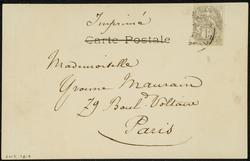 Imprimé
Carte Postale
Mademoiselle
Yvonne Maurain
79 Boul. Voltaire
Paris